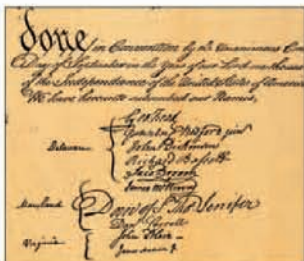 done in Convention by the Unanimous Con
Day of September in the Year of our Lord one thous
of the Independance of the United States of Americ
We have hereunto subscribed our Names,
Delaware
Geo: Read
Gunning Bedford jun
John Dickinson
Richard Bassett
Jaco: Broom
James McHenry
Maryland
Dan of St Thos Jenifer
Danl Carroll
Virginia
John Blair —
James Madison Jr